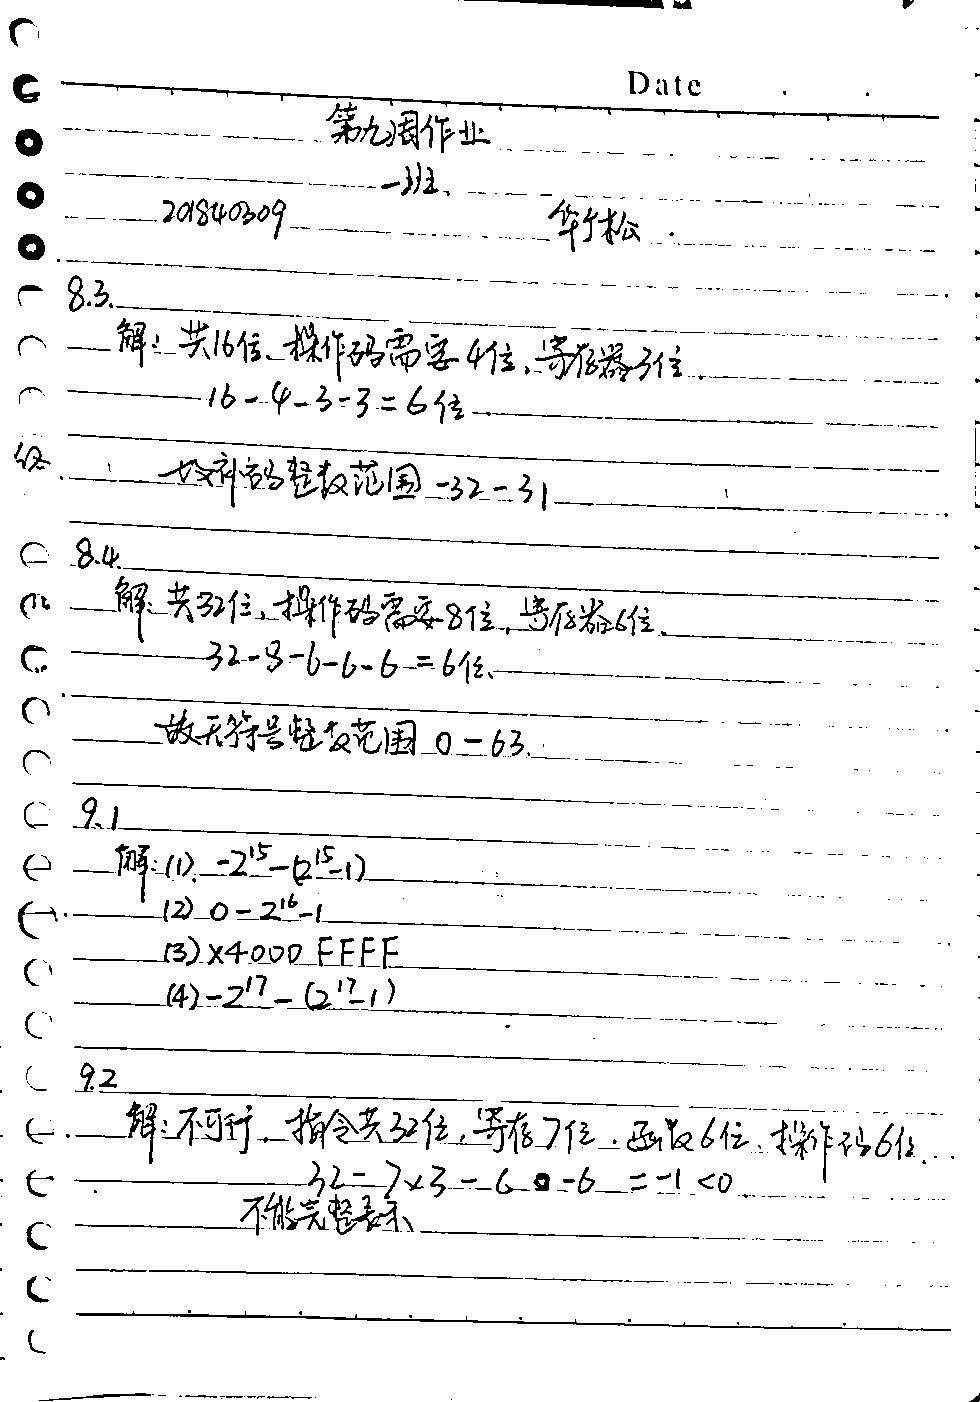 Date
第九周作业
一班、
201840309
华松
8.3.
解：共16位、操作码需要4位，寄存器3位．
16-4-3-3=6位
故补码整数范围 -32-31
8.4.
解：共32位，操作码需要8位，寄存器6位．
32-8-6-6-6=6位、
故无符号整数范围 0-63.
9.1
解：(1). -2¹⁵-(2¹⁵-1)
(2) 0-2¹⁶-1
(3) x4000 FFFF
(4) -2¹⁷-(2¹⁷-1)
9.2
解：不可行，指令共32位，寄存7位．函数6位、操作码6位．
32-7×3-6-6=-1<0
不能完整表示、